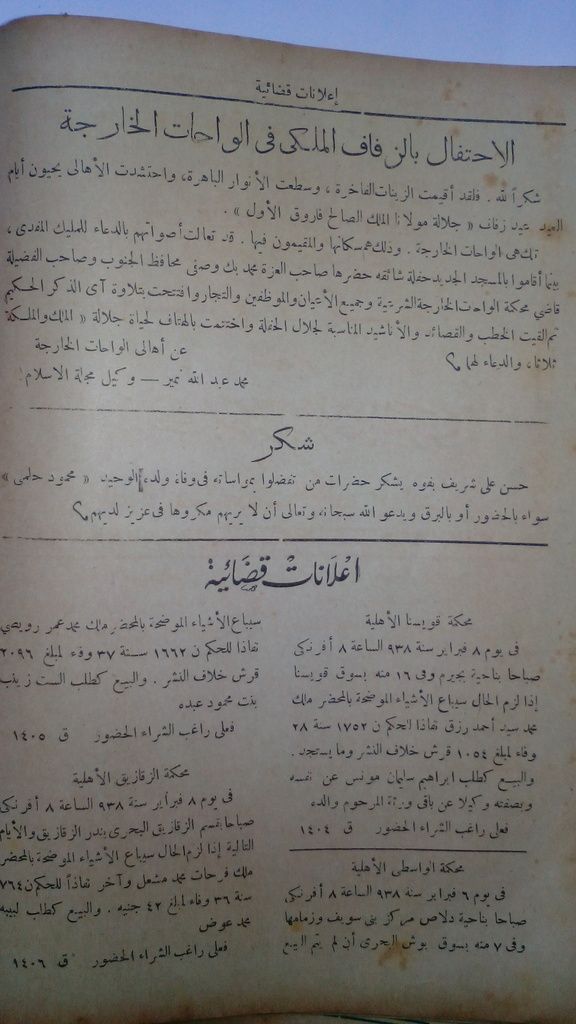 إعلانات قضائية
الاحتفال بالزفاف الملكى فى الواحات الخارجة
شكراً لله . فلقد أقيمت الزينات الفاخرة ، وسطعت الأنوار الباهرة، واحتشدت الأهالى يحيون أيام
العيد عيد زفاف « جلالة مولانا الملك الصالح فاروق الأول » .
تلك هى الواحات الخارجة . وذلك هم سكانها والمقيمون فيها . قد تعالت أصواتهم بالدعاء للمليك المفدى ،
بينما أقاموا بالمسجد الجديد حفلة شائقة حضرها صاحب العزة محمد بك وصفى محافظ الجنوب وصاحب الفضيلة
قاضي محكمة الواحات الخارجة الشرعية وجميع الأعيان والموظفين والتجار وافتتحت بتلاوة آى الذكر الحكيم
ثم القيت الخطب والقصائد والأناشيد المناسبة لجلال الحفلة واختتمت بالهتاف لحياة جلالة « الملك والملكة
ثلاثا ، والدعاء لهما
عن أهالى الواحات الخارجة
محمد عبد الله نمير — وكيل مجلة الاسلام
شكر
حسن على شريف بفوه يشكر حضرات من تفضلوا بمواساته فى وفاة ولده الوحيد « محمود حلمى »
سواء بالحضور أو بالبرق ويدعو الله سبحانه وتعالى أن لا يريهم مكروها فى عزيز لديهم
اعلانات قضائية
محكمة قويسنا الأهلية
فى يوم ٨ فبراير سنة ٩٣٨ الساعة ٨ أفرنكى
صباحا بناحية بجيرم وفى ١٦ منه بسوق قويسنا
إذا لزم الحال سيباع الأشياء الموضحة بالمحضر ملك
محمد سيد أحمد رزق نفاذا للحكم ن ١٧٥٢ سنة ٢٨
وفاء لمبلغ ١٠٥٤ قرش خلاف النشر وما يستجد .
والبيع كطلب ابراهيم سليمان مونس عن نفسه
وبصفته وكيلا عن باقى ورثة المرحوم والده
فعلى راغب الشراء الحضور ق ١٤٠٤
محكمة الواسطى الأهلية
فى يوم ٦ فبراير سنة ٩٣٨ الساعة ٨ أفرنكى
صباحا بناحية دلاص مركز بنى سويف وزمامها
وفى ٧ منه بسوق بوش البحرى أن لم يتم البيع
سيباع الأشياء الموضحة بالمحضر ملك محمد عمر رويصى
نفاذا للحكم ن ١٦٦٢ سنة ٣٧ وفاء لمبلغ ٢٠٩٦
قرش خلاف النشر . والبيع كطلب الست زينب
بنت محمود عبده
فعلى راغب الشراء الحضور ق ١٤٠٥
محكمة الزقازيق الأهلية
فى يوم ٨ فبراير سنة ٩٣٨ الساعة ٨ أفرنكى
صباحا بقسم الزقازيق البحرى بندر الزقازيق والأيام
التالية إذا لزم الحال سيباع الأشياء الموضحة بالمحضر
ملك فرحات محمد مشعل وآخر نفاذاً للحكم ن ٧٦٤
سنة ٣٦ وفاء لمبلغ ٤٢ جنيه . والبيع كطلب لبيبه
محمد عوض
فعلى راغب الشراء الحضور ق ١٤٠٦